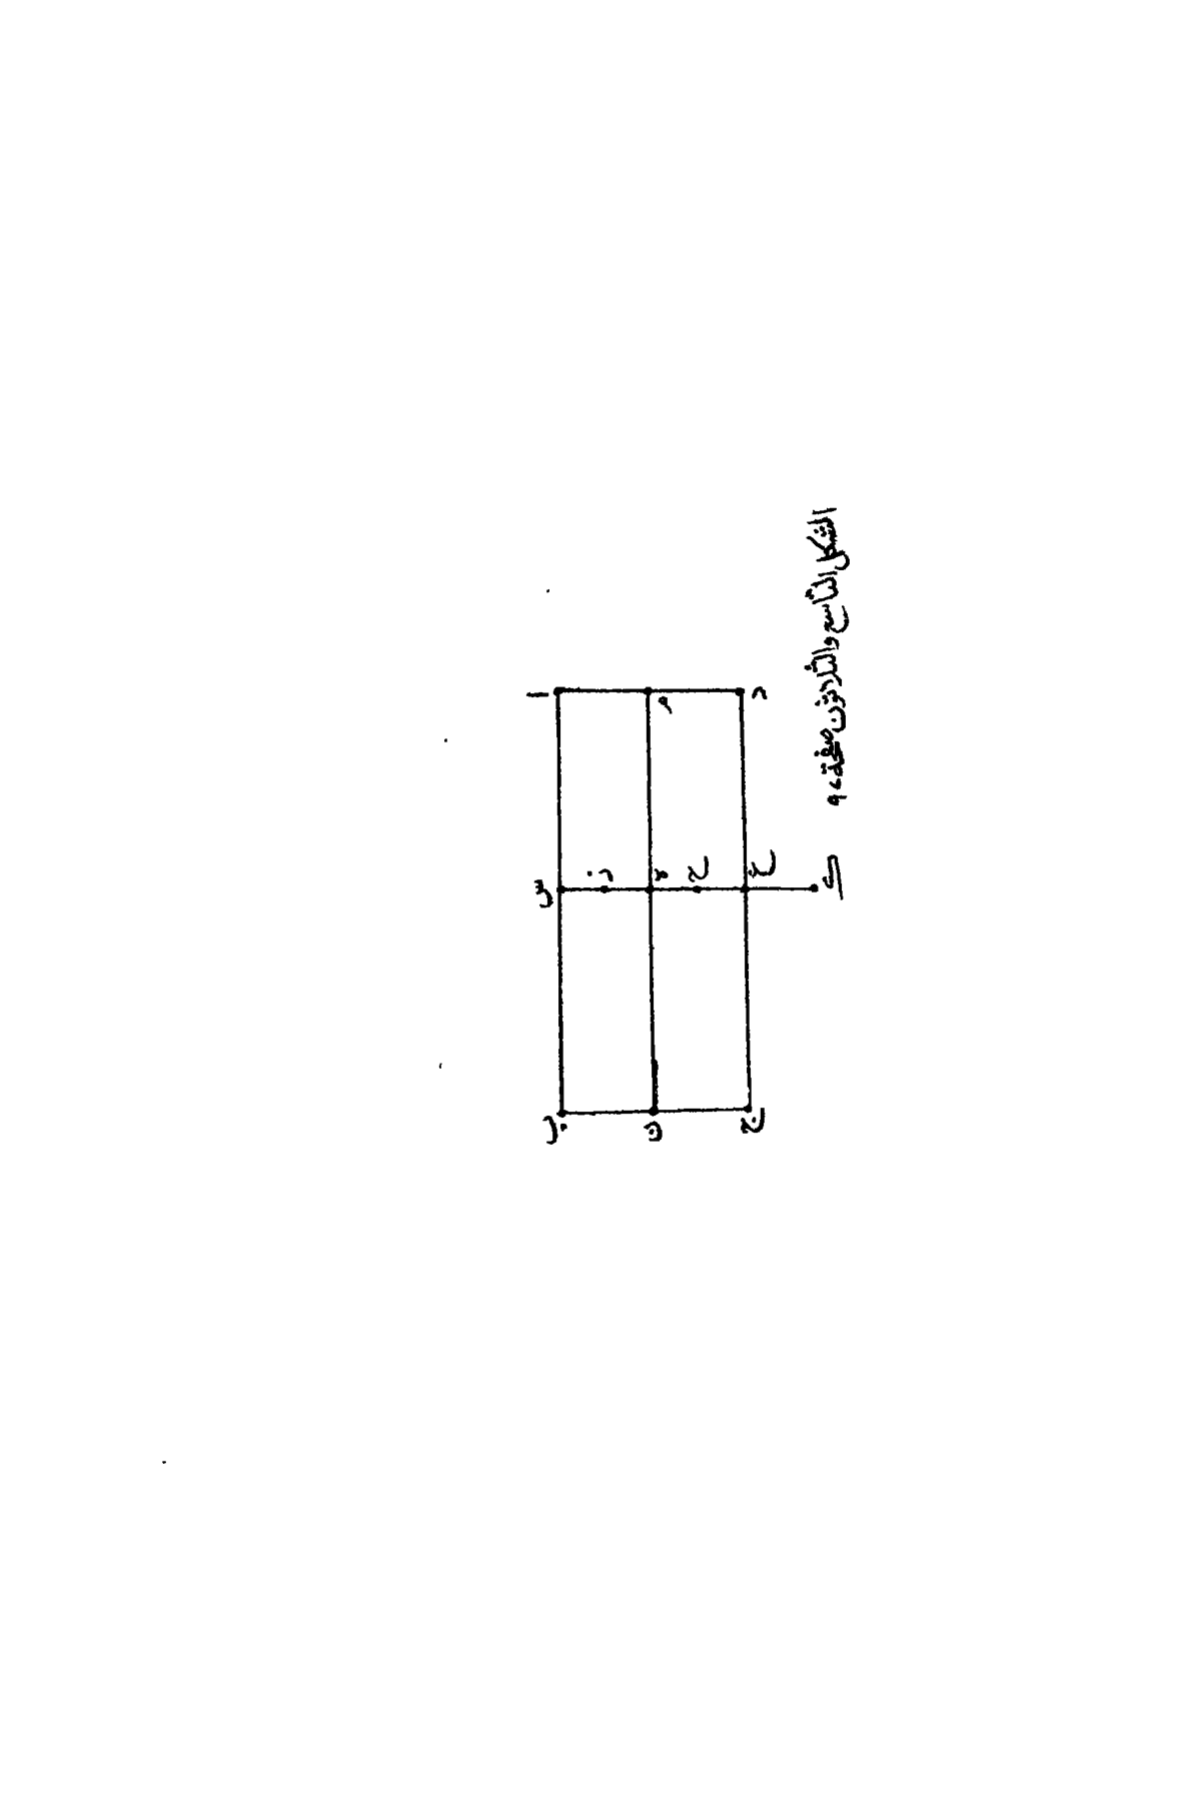 ا س ب
ز
م ه ن
ح
د ع ج
ك
الشكل التاسع والثلاثون صفحة ٩٤